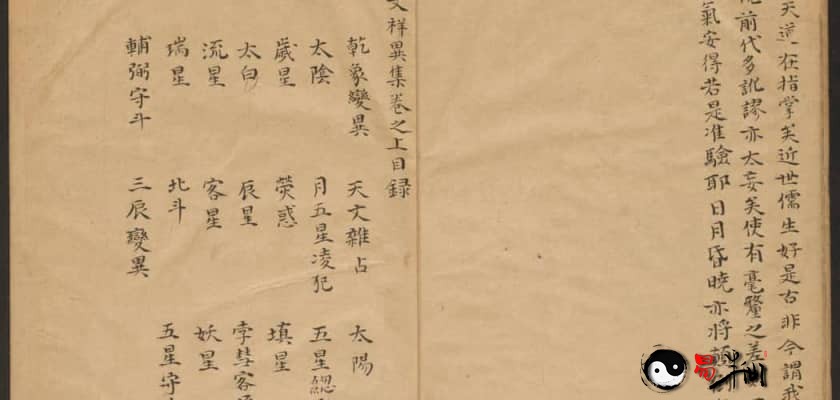 天道在指掌矣近世儒生好是古非今謂我
前代多訛謬亦太妄矣使有毫釐之差
氣安得若是准驗耶日月昏曉亦將
文祥異集卷之上目録
乾象變異 天文雜占 太陽
太陰 月五星凌犯 五星
歲星 熒惑 填星
太白 辰星 孛彗客
流星 客星 妖星
瑞星 北斗 五星守
輔弼守斗 三辰變異
易